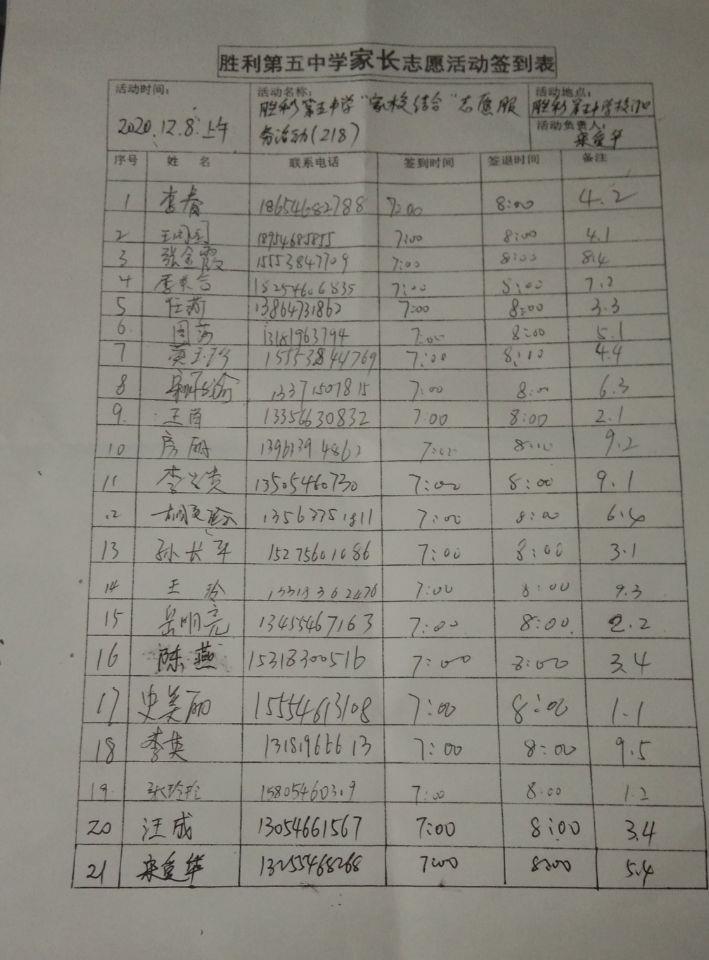 胜利第五中学家长志愿活动签到表
活动时间： 活动名称： 活动地点：
2020.12.8.上午 胜利第五中学"家校结合"志愿服务活动(218) 胜利第五中学校门口
活动负责人：
序号 姓名 联系电话 签到时间 签退时间 备注
1 李春 18654682788 7:00 8:00 4.2
2 18954685855 7:00 8:00 4.1
3 张金霞 15553847709 7:00 8:00 8.4
4 18254606835 7:00 8:00 7.2
5 任莉 13864731862 7:00 8:00 3.3
6. 周芬 13181963794 7:00 8:00 5.1
7 15553844769 7:00 8:00 4.4
8 13371507815 7:00 8:00 6.3
9. 13356630832 7:00 8:00 2.1
10 房丽 7:00 8:00 9.2
11 13505460730 7:00 8:00 9.1
12 13563751811 7:00 8:00 6.4
13 孙长军 15275601086 7:00 8:00 3.1
14 王玲 7:00 8:00 9.3
15 岳明亮 13455467163 7:00 8:00 2.2
16 陈燕 15318300516 7:00 8:00 3.4
17 史美丽 15554613108 7:00 8:00 1.1
18 李英 7:00 8:00 9.5
19 张玲玲 7:00 8:00 1.2
20 汪成 13054661567 7:00 8:00 3.4
21 13255468268 7:00 8:00 5.4